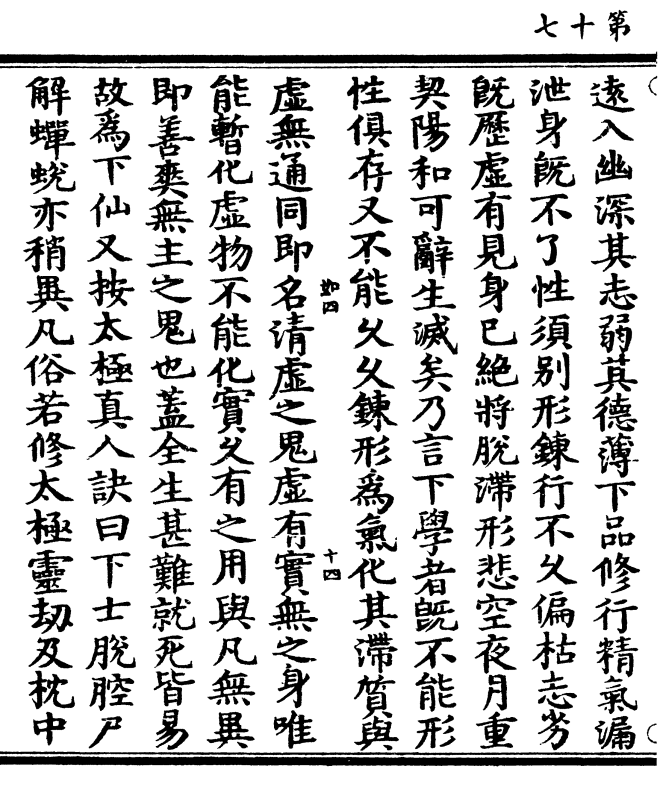 第十七
遠入幽深其志弱其德薄下品修行精氣漏
泄身旣不了性須别形鍊行不久偏枯志劣
旣歷虛有見身已絕將脫滯形悲空夜月重
契陽和可辭生滅矣乃言下學者旣不能形
性俱存又不能久久鍊形爲氣化其滯質與
如四
十四
虛無通同即名清虛之鬼虛有實無之身唯
能暫化虛物不能化實久有之用與凡無異
即善爽無主之鬼也蓋全生甚難就死皆易
故爲下仙又按太極真人訣曰下士脫腔尸
解蟬蛻亦稍異凡俗若修太極靈劫及枕中